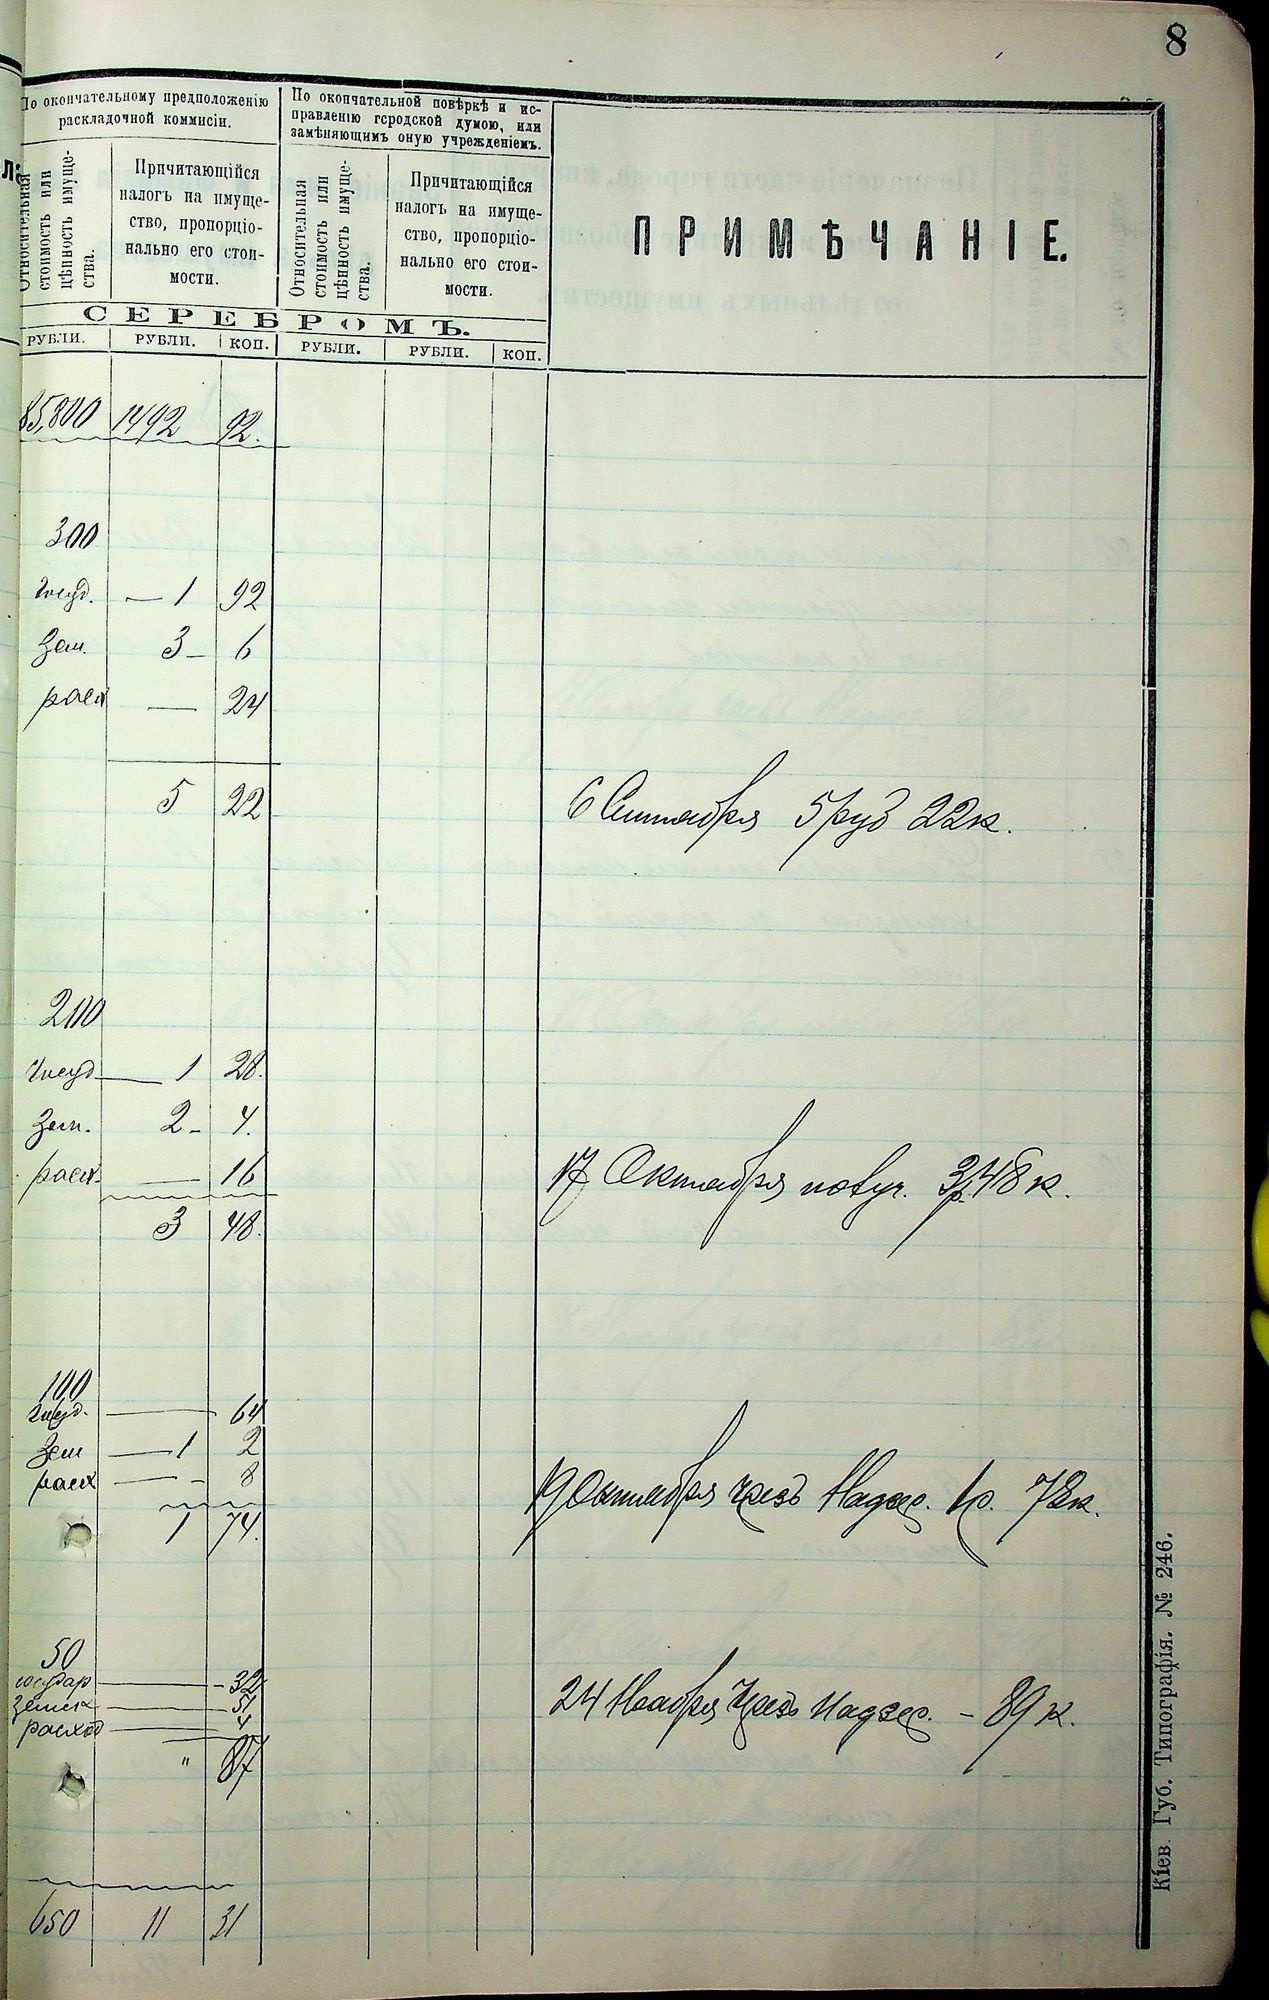 8
По окончательному предположенію
раскладочной коммисіи.
По окончательной повѣркѣ и ис-
правленію городской думою, или
замѣняющимъ оную учрежденіемъ.
Относительная
стоимость или
цѣнность имуще-
ства.
Причитающійся
налогъ на имуще-
ство, пропорціо-
нально его стои-
мости.
Относительная
стоимость или
цѣнность имуще-
ства.
Причитающійся
налогъ на имуще-
ство, пропорціо-
нально его стои-
мости.
ПРИМѢЧАНІЕ.
СЕРЕБРОМЪ.
РУБЛИ. РУБЛИ. КОП. РУБЛИ. РУБЛИ. КОП.
85,800 1492 92.
300
Госуд. — 1 92
Зем. 3 — 6
расх — 24
5 22 6 Сентября 5 руб 22 к.
200
Госуд — 1 28.
Зем. 2 - 4.
расх. — 16
17 Октября получ. 3 р. 48 к.
3 48.
100
Госуд. — 64
Зем — 1 2
расх — - 8
19 Октября чрезъ Надзер. 1 р. 78 к.
1 74.
50
Государ — - 32
Земск — 51
расход — 4
24 Ноября чрезъ Надзер. - 89 к.
" 87
650 11 31
Кіев. Губ. Типографія. № 246.